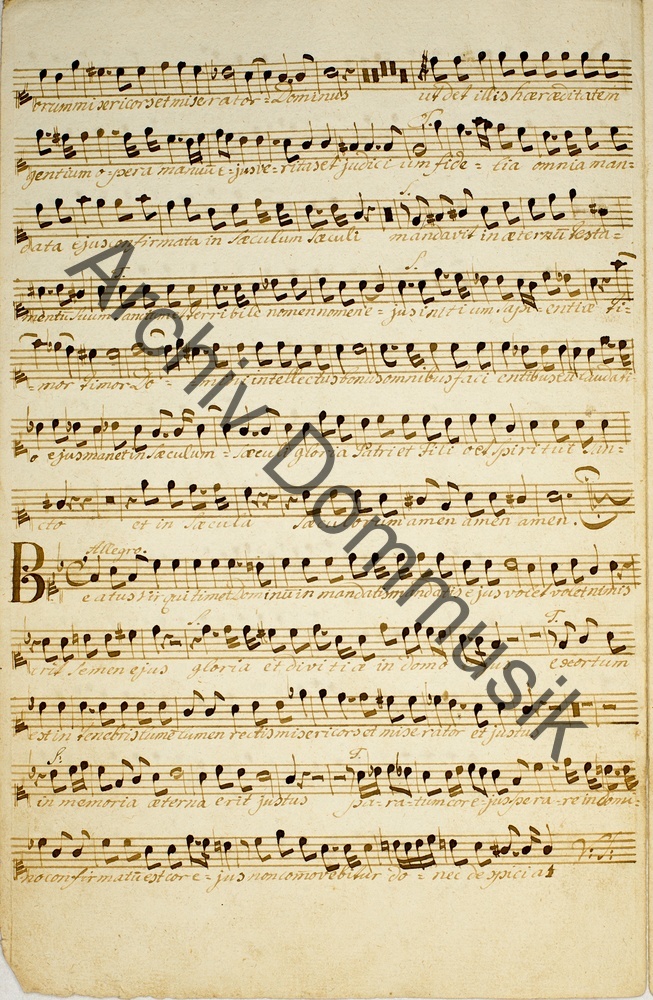 orum misericors et miserator Dominus ut det illis hæræditatem
gentium o-pera manuū e-jus ve-ritas et judici um fide-lia omnia man=
S.
data ejus confirmata in sæculum sæculi mandavit in æternū testa-
T. S.
mentū suum Sanctum et terribile nomen nomen e-jus initi um sapi-entiæ ti-
-mor timor Do- mini intellectus bonus omnibus faci entibus eū laudati
o ejus manet in sæculum - sæculi gloria Patri et Fili o et Spiritui San-
cto et in sæcula sæculorum amen amen amen.
Allegro.
Beatus vir qui timet Dominū in mandatis mandatis ejus volet volet nimis
S. T.
erit semen ejus gloria et divitiæ in domo ejus exortum
est in tenebris lumē lumen rectis misericors et miserator et justus
S. T.
in memoria æterna erit justus pa-ra-tum cor e-jus spera-re in Domi-
no confirmatū est cor e-jus non comovebitur do-nec despiciat
V: S:
Archiv Dommusik